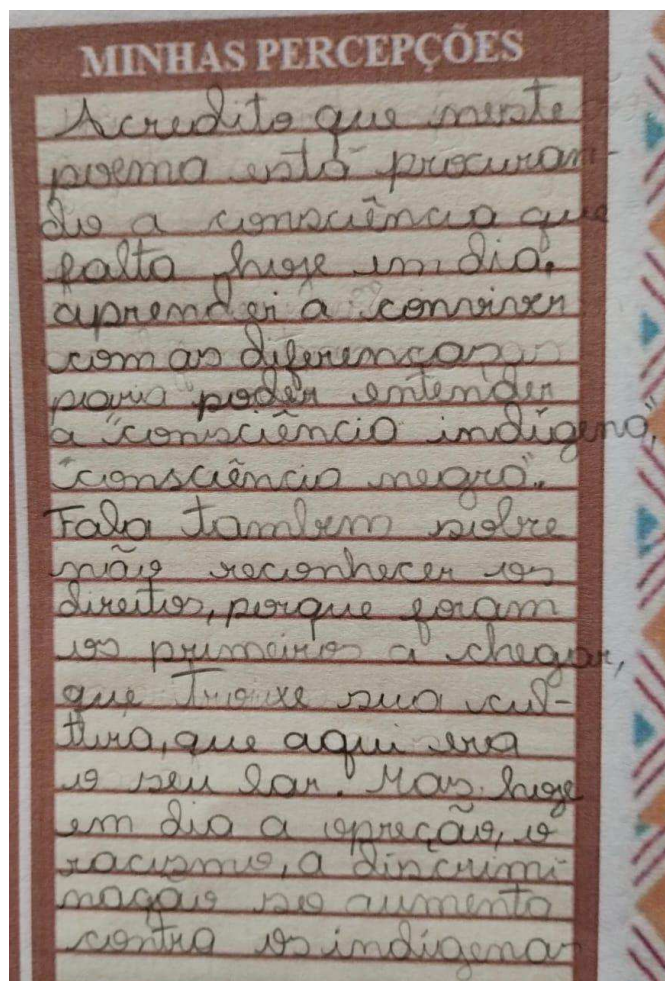 MINHAS PERCEPÇÕES
Acredito que neste
poema está procuran-
do a consciência que
falta hoje em dia.
aprender a conviver
com as diferenças
para poder entender
a "consciência indígena",
"consciência negra".
Fala também sobre
não reconhecer os
direitos, porque foram
os primeiros a chegar,
que trouxe sua cul-
tura, que aqui era
o seu lar. Mas hoje
em dia a opreção, o
racismo, a discrimi-
nação so aumenta
contra os indígenas